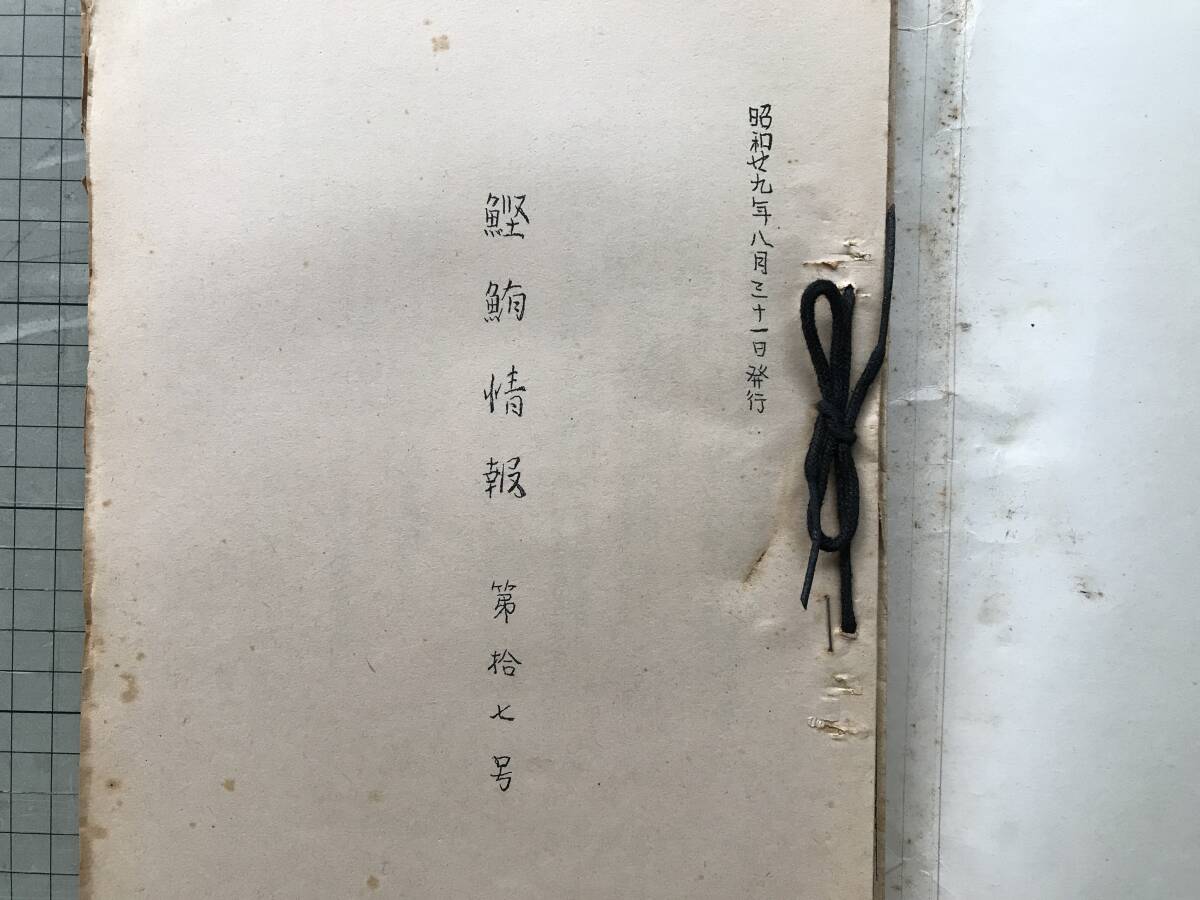 昭和廿九年八月三十一日発行
鰹鮪情報 第拾七号